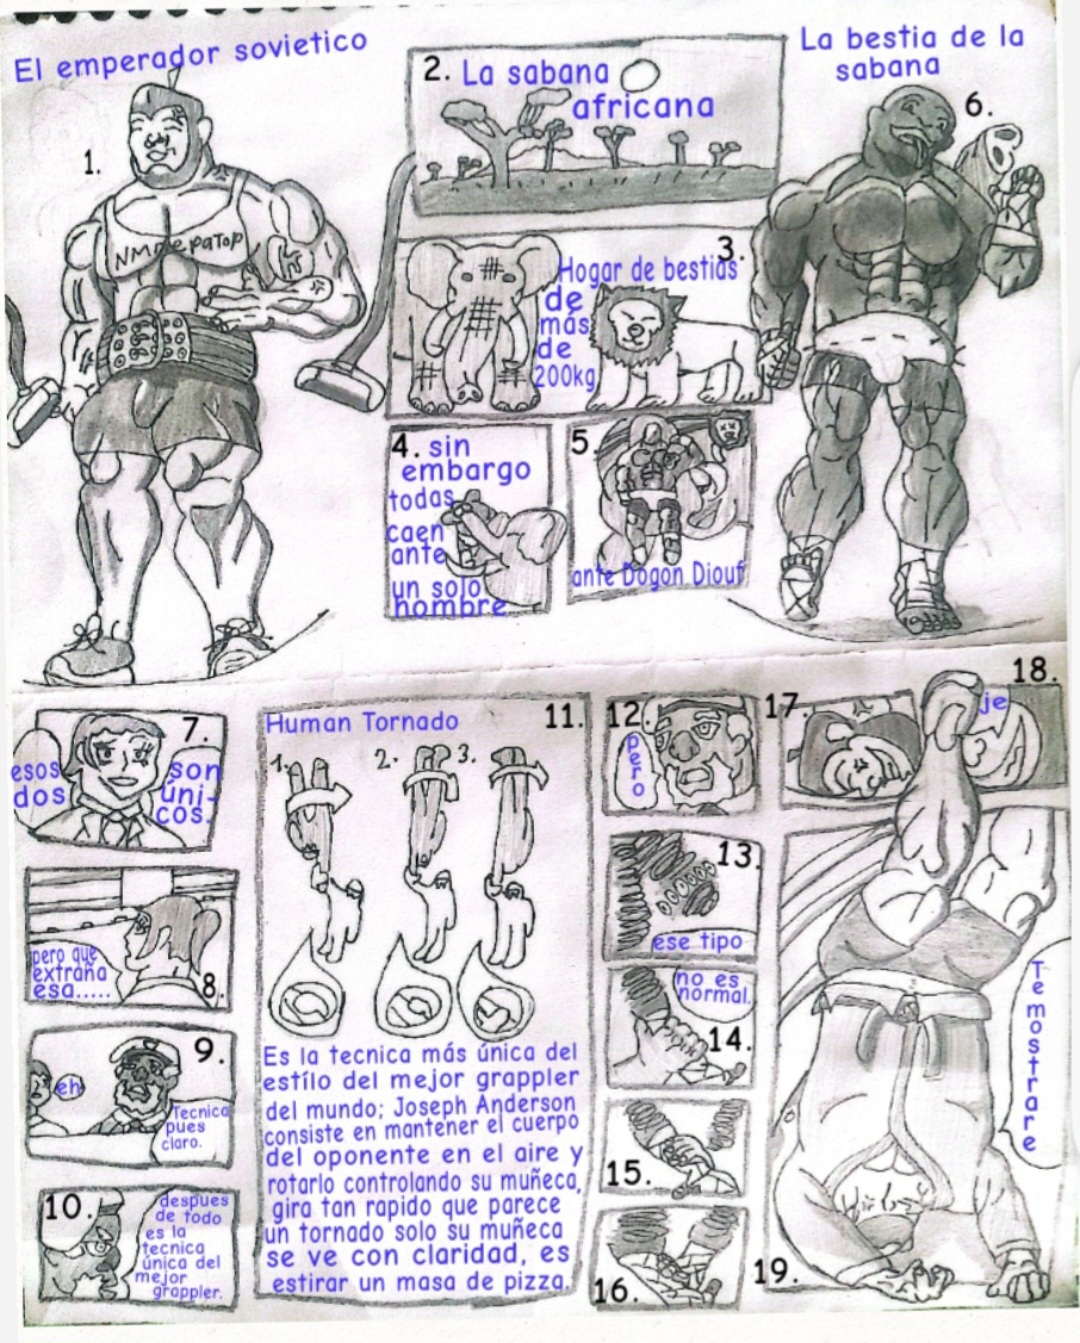 El emperador sovietico
1.
2. La sabana
africana
La bestia de la
sabana
6.
3.
Hogar de bestias
de
más
de
200kg
4. sin
embargo
todas
caen
ante
un solo
hombre
5.
ante Dogon Diouf
7.
esos
dos
son
úni-
cos.
pero que
extraña
esa.....
8.
9.
eh
Tecnica
pues
claro.
10.
despues
de todo
es la
tecnica
única del
mejor
grappler.
Human Tornado
11.
1.
2.
3.
Es la tecnica más única del
estílo del mejor grappler
del mundo; Joseph Anderson
consiste en mantener el cuerpo
del oponente en el aire y
rotarlo controlando su muñeca,
gira tan rapido que parece
un tornado solo su muñeca
se ve con claridad, es
estirar un masa de pizza.
12.
pero
13.
ese tipo
no es
normal.
14.
15.
16.
17.
18.
je
Te mostrare
19.